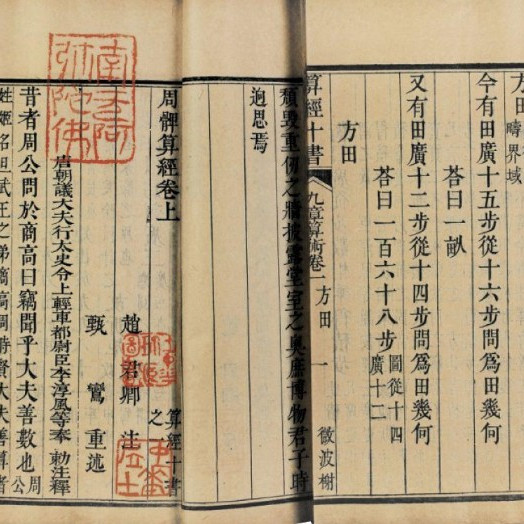 方田
畴界域
今有田廣十五步從十六步問爲田幾何
荅曰一畝
又有田廣十二步從十四步問爲田幾何
荅曰一百六十八步
圖從十四
廣十二
方田
算經十書
九章算術卷一方田
一
微波榭
頹毀重仞之牆披露堂室之奥庶博物君子時
迥思焉
周髀算經卷上
算經十書之
趙君卿注
甄鸞重述
唐朝議大夫行太史令上輕車都尉臣李淳風等奉敕注釋
昔者周公問於商高曰竊聞乎大夫善數也
周公
姓姬名旦武王之弟商高周時賢大夫善算者
南无阿弥陀佛